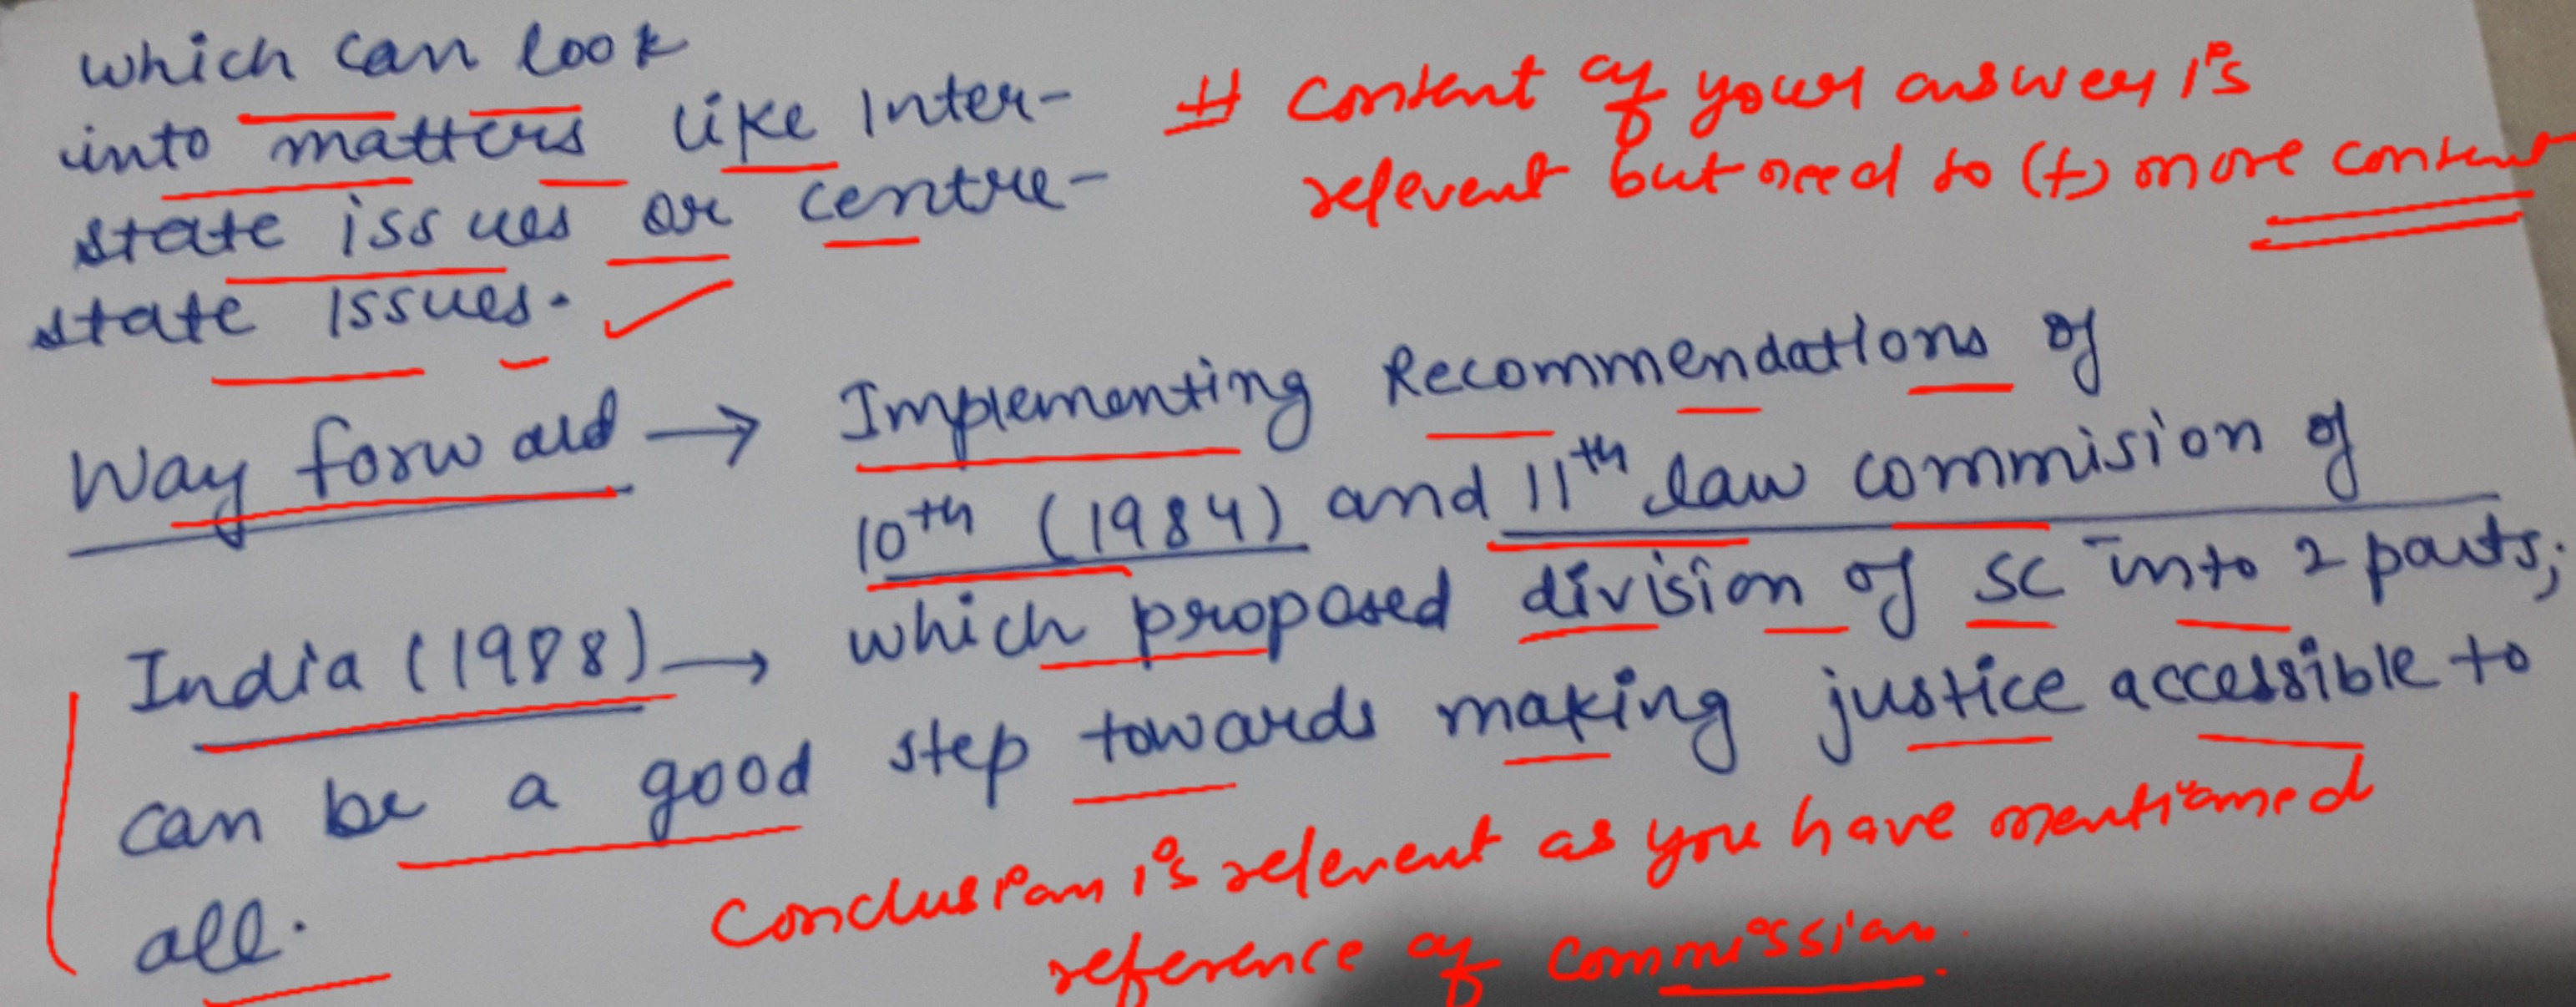 which can look
into matters like Inter-
state issues or centre-
state issues.
# content of your answer is
relevent but need to (+) more content
Way forward → Implementing Recommendations of
10th (1984) and 11th law commision of
India (1988) → which proposed division of SC into 2 parts;
can be a good step towards making justice accessible to
all.
Conclusion is relevent as you have mentioned
reference of commission.